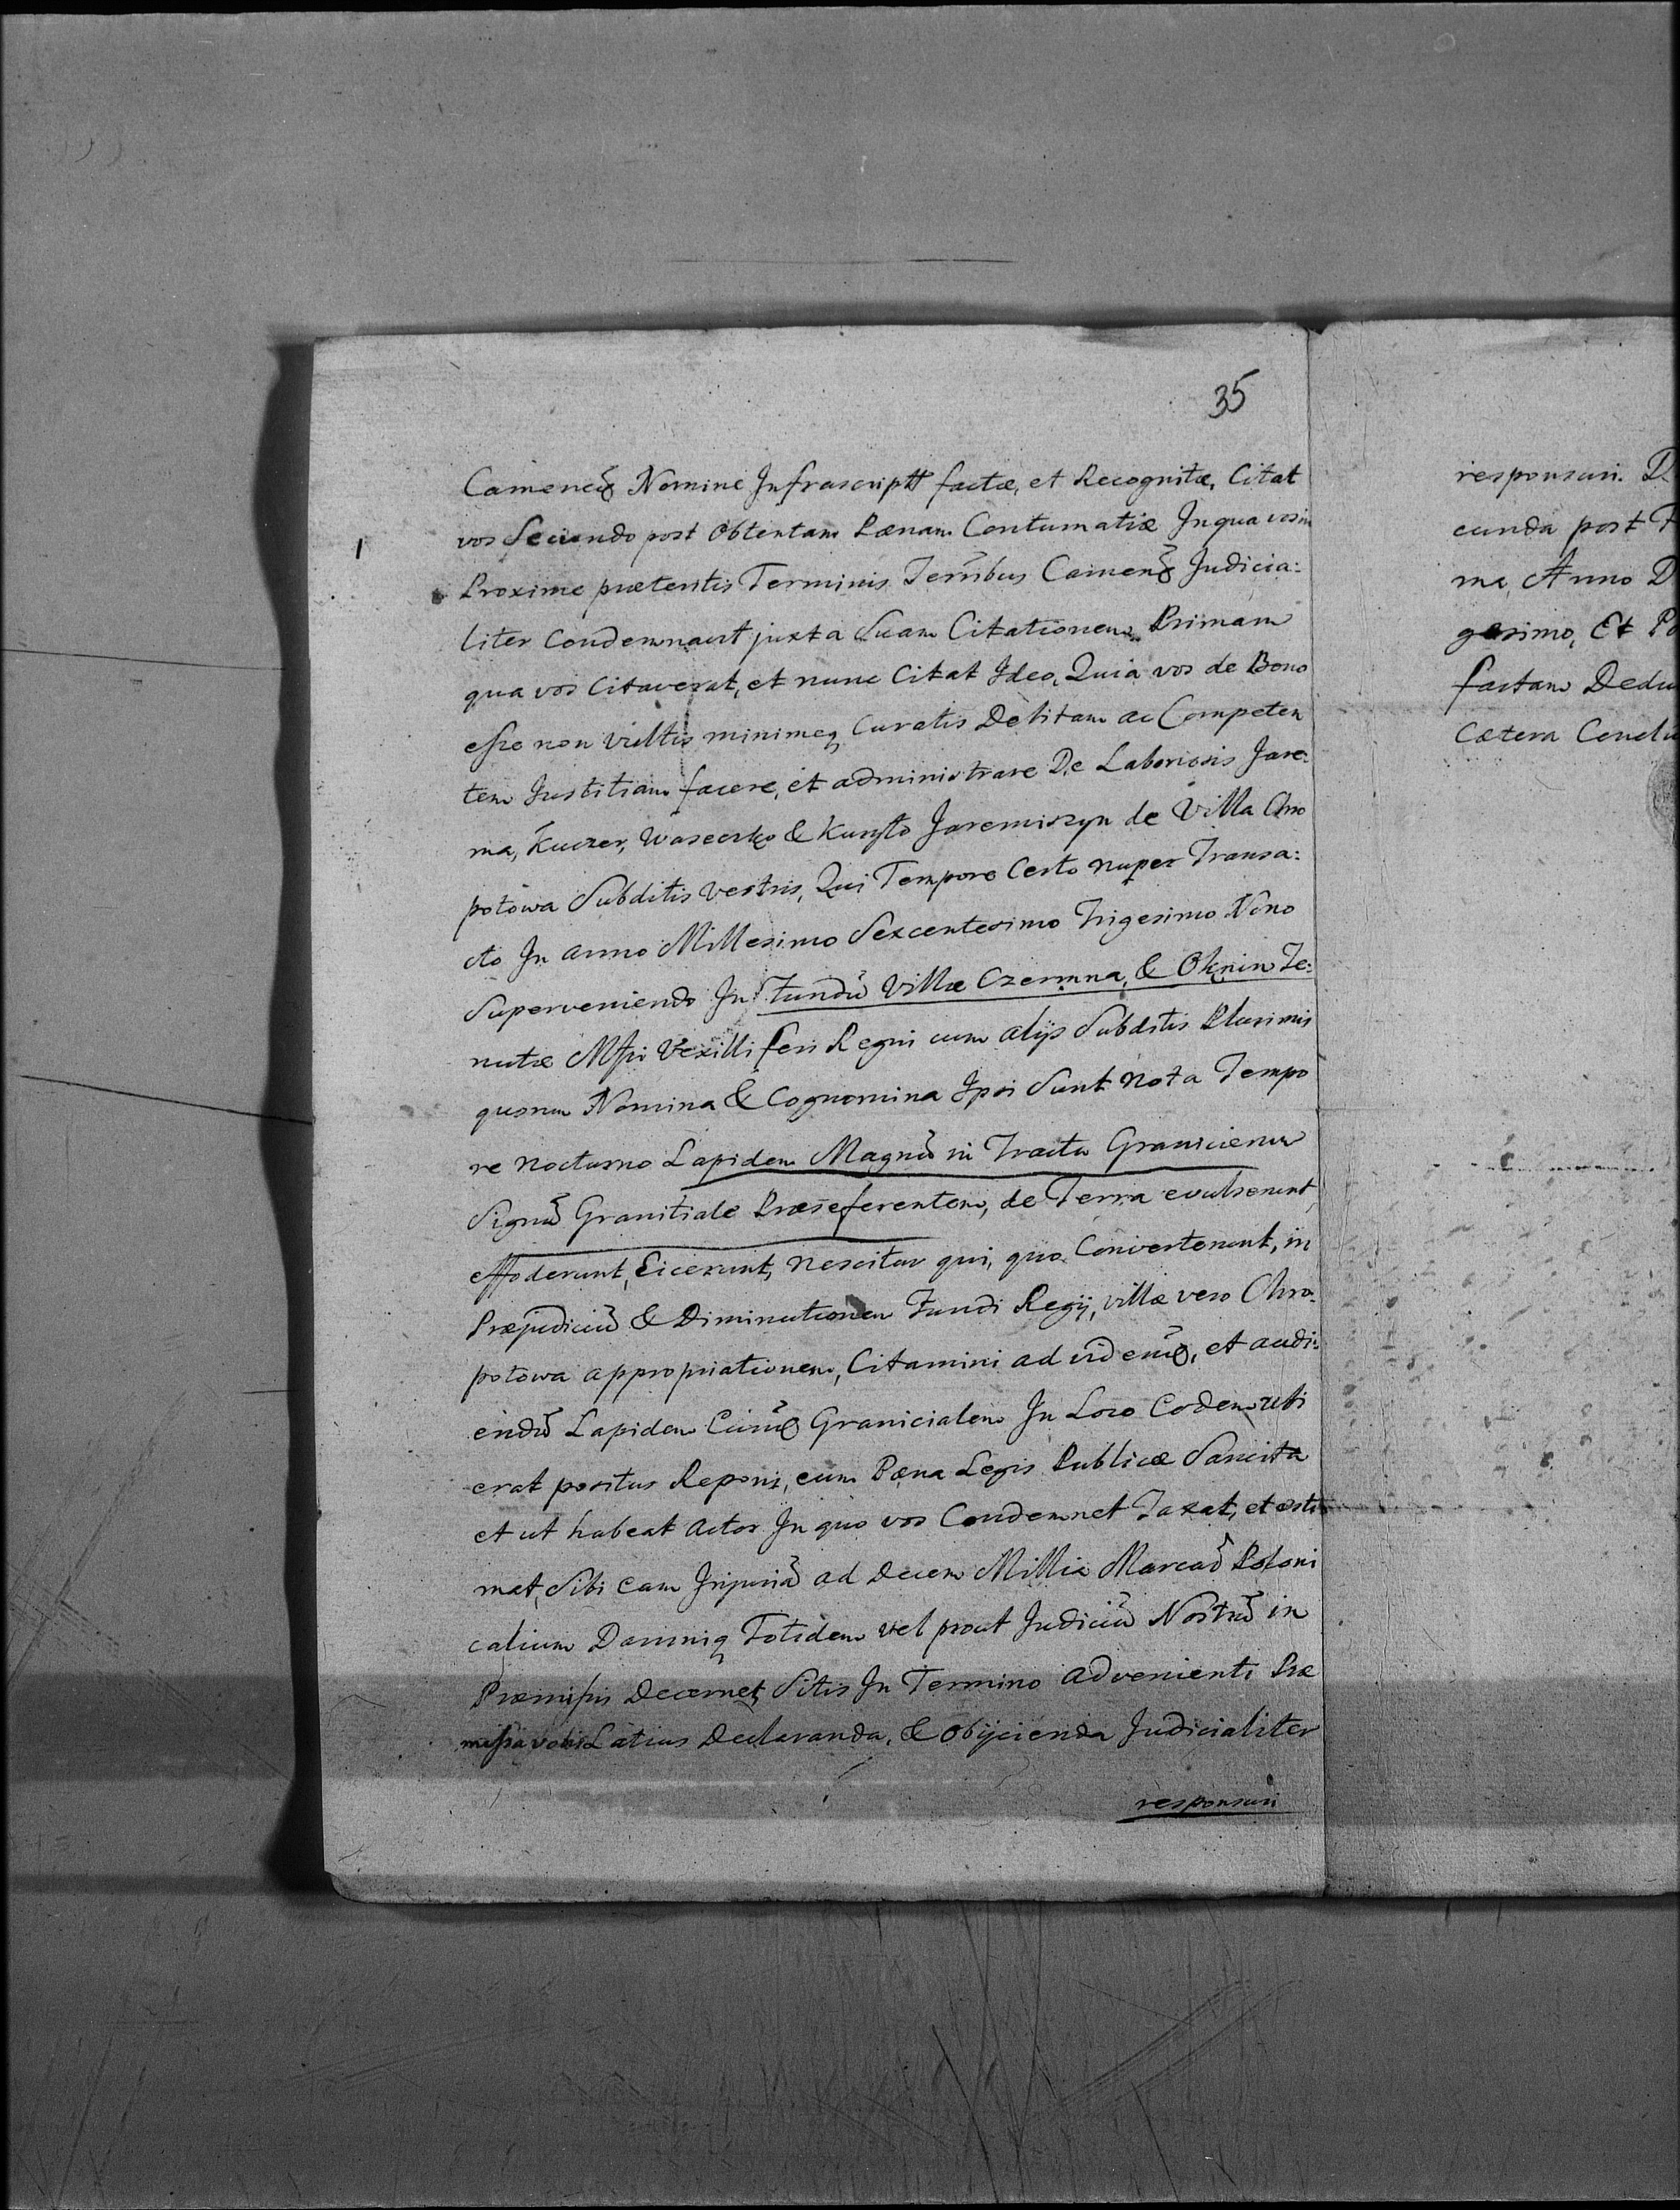 35
Camenecꝫ Nomine Infrascriptt factæ, et Recognitæ, Citat
vos Secundo post Obtentam Pænam Contumatiæ In qua vos in
Proxime præteritis Terminis Terribus Camenꝫ Judicia:
liter Condemnavit juxta Suam Citationem Primam
qua vos Citaverat, et nunc Citat Ideo, Quia vos de Bono
esse non vultis minimeq Curatis Debitam ac Competen
tem Justitiam facere, et administrare De Laboriosis Jare:
ma, Kuczer, Waseczko & Kuryło Jaremiszyn de Villa Chro
potowa Subditis vestris, Qui Tempore Certo nuper Transa:
cto In anno Millesimo Sexcentesimo Trigesimo Nono
Superveniendo In Fundū Villæ Czermna, & Oknin Te:
nutæ Mfci Vexilliferi Regni cum alijs Subditis Plurimis
quorum Nomina & Cognomina Ipsi Sunt Nota Tempo
re nocturno Lapidem Magnū in Tractu Graniciem
Signū Granitiale Præseferentem, de Terra evulserunt,
effoderunt, Eicerunt, Nescitur qui, quo Converterunt, in
Præjudiciū & Diminutionem Fundi Regij, villæ vero Chro:
potowa appropriationem, Citamini ad videnꝫ, et audi:
endū Lapidem Eumꝫ Granicialem In Loco Eodem ubi
erat positus Reponi, cum Pæna Legis Publicæ Sancita
et ut habeat Actor In quo vos Condemnet Taxat, et æsti
mat, Sibi eam Injuriā ad Decem Millia Marcaū Poloni
calium Damniq Totidem vel prout Judiciū Nostrū in
Præmissis Decernet, Sitis In Termino advenienti Præ
missa vobis Latius Declaranda, & Obijcienda Judicialiter
responsuri
responsuri. D
cunda post F
ma, Anno D
gesimo, Et Po
factam Dedu
Cætera Conclu